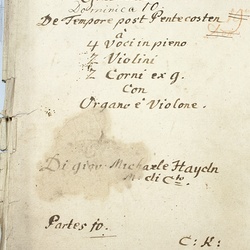 Dominica 10.
De Tempore post Pentecosten
à
4 Voci in pieno
2 Violini
2 Corni ex g.
Con
Organo è Violone.
Di giov. Michaele Haydn
Partes 10.
C: K: